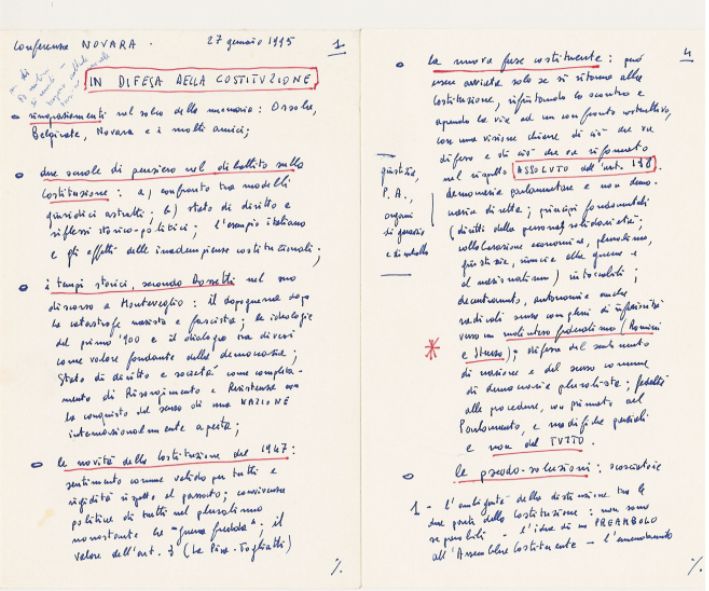 Conferenza NOVARA. 27 gennaio 1995 1
IN DIFESA DELLA COSTITUZIONE
ringraziamenti nel solco della memoria: Ossola,
Belgirate, Novara e i molti amici;
due scuole di pensiero nel dibattito sulla
Costituzione: a) confronto tra modelli
giuridici astratti; b) stato di diritto e
riflessi storico-politici; l'esempio italiano
e gli effetti delle inadempienze costituzionali;
i tempi storici, secondo Dossetti nel suo
discorso a Monteveglio: il dopoguerra dopo
la catastrofe nazista e fascista; le ideologie
del primo '900 e il dialogo tra diversi
come valore fondante della democrazia;
Stato di diritto e società come completa-
mento di Risorgimento e Resistenza con
la conquista del senso di una NAZIONE
internazionalmente aperta;
le novità della Costituzione del 1947:
sentimento comune valido per tutti e
rigidità rispetto al passato; convivenza
politica di tutti nel pluralismo
nonostante la "guerra fredda"; il
valore dell'art. 3 (La Pira-Togliatti)
%.
4
la nuova fase costituente: può
essere avviata solo se si ritorna alla
Costituzione, rifiutando lo scontro e
aprendo la via ad un confronto costruttivo,
con una visione chiara di ciò che va
difeso e di ciò che va riformato
nel rispetto ASSOLUTO dell'art. 138.
democrazia parlamentare e non demo-
crazia diretta; principi fondamentali
(diritti della persona, solidarietà,
collaborazione economica, pluralismo,
giustizia, rinuncia alla guerra e
al nazionalismo) intoccabili;
decentramento, autonomie anche
radicali senza complessi di inferiorità
verso un autentico federalismo (Romini
e Sturzo); difesa del sentimento
di nazione e del senso comune
di democrazia pluralista; fedeltà
alle procedure, con primato del
Parlamento, e modifiche parziali
e non del TUTTO.
giustizia,
P.A.,
organi
di garanzia
e di controllo
le pseudo-soluzioni: scorciatoie
1 - l'ambiguità della distinzione tra le
due parti della Costituzione: non sono
separabili - l'idea di un PREAMBOLO
all'Assemblea Costituente - l'emendamento
%.